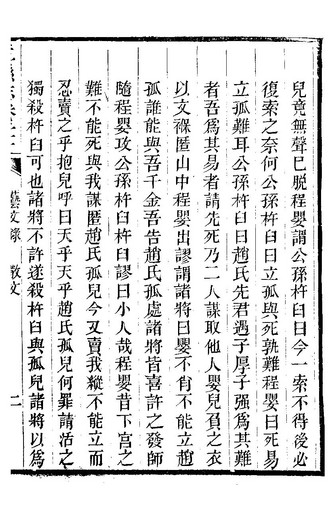 兒竟無聲已脫程嬰謂公孫杵臼曰今一索不得後必
復索之奈何公孫杵臼曰立孤與死孰難程嬰曰死易
立孤難耳公孫杵臼曰趙氏先君遇子厚子強為其難
者吾為其易者請先死乃二人謀取他人嬰兒負之衣
以文褓匿山中程嬰出謬謂諸將曰嬰不肖不能立趙
孤誰能與吾千金吾告趙氏孤處諸將皆喜許之發師
隨程嬰攻公孫杵臼杵臼謬曰小人哉程嬰昔下宮之
難不能死與我謀匿趙氏孤兒今又賣我縱不能立而
忍賣之乎抱兒呼曰天乎天乎趙氏孤兒何罪請活之
獨殺杵臼可也諸將不許遂殺杵臼與孤兒諸將以為
藝文錄 散文 二